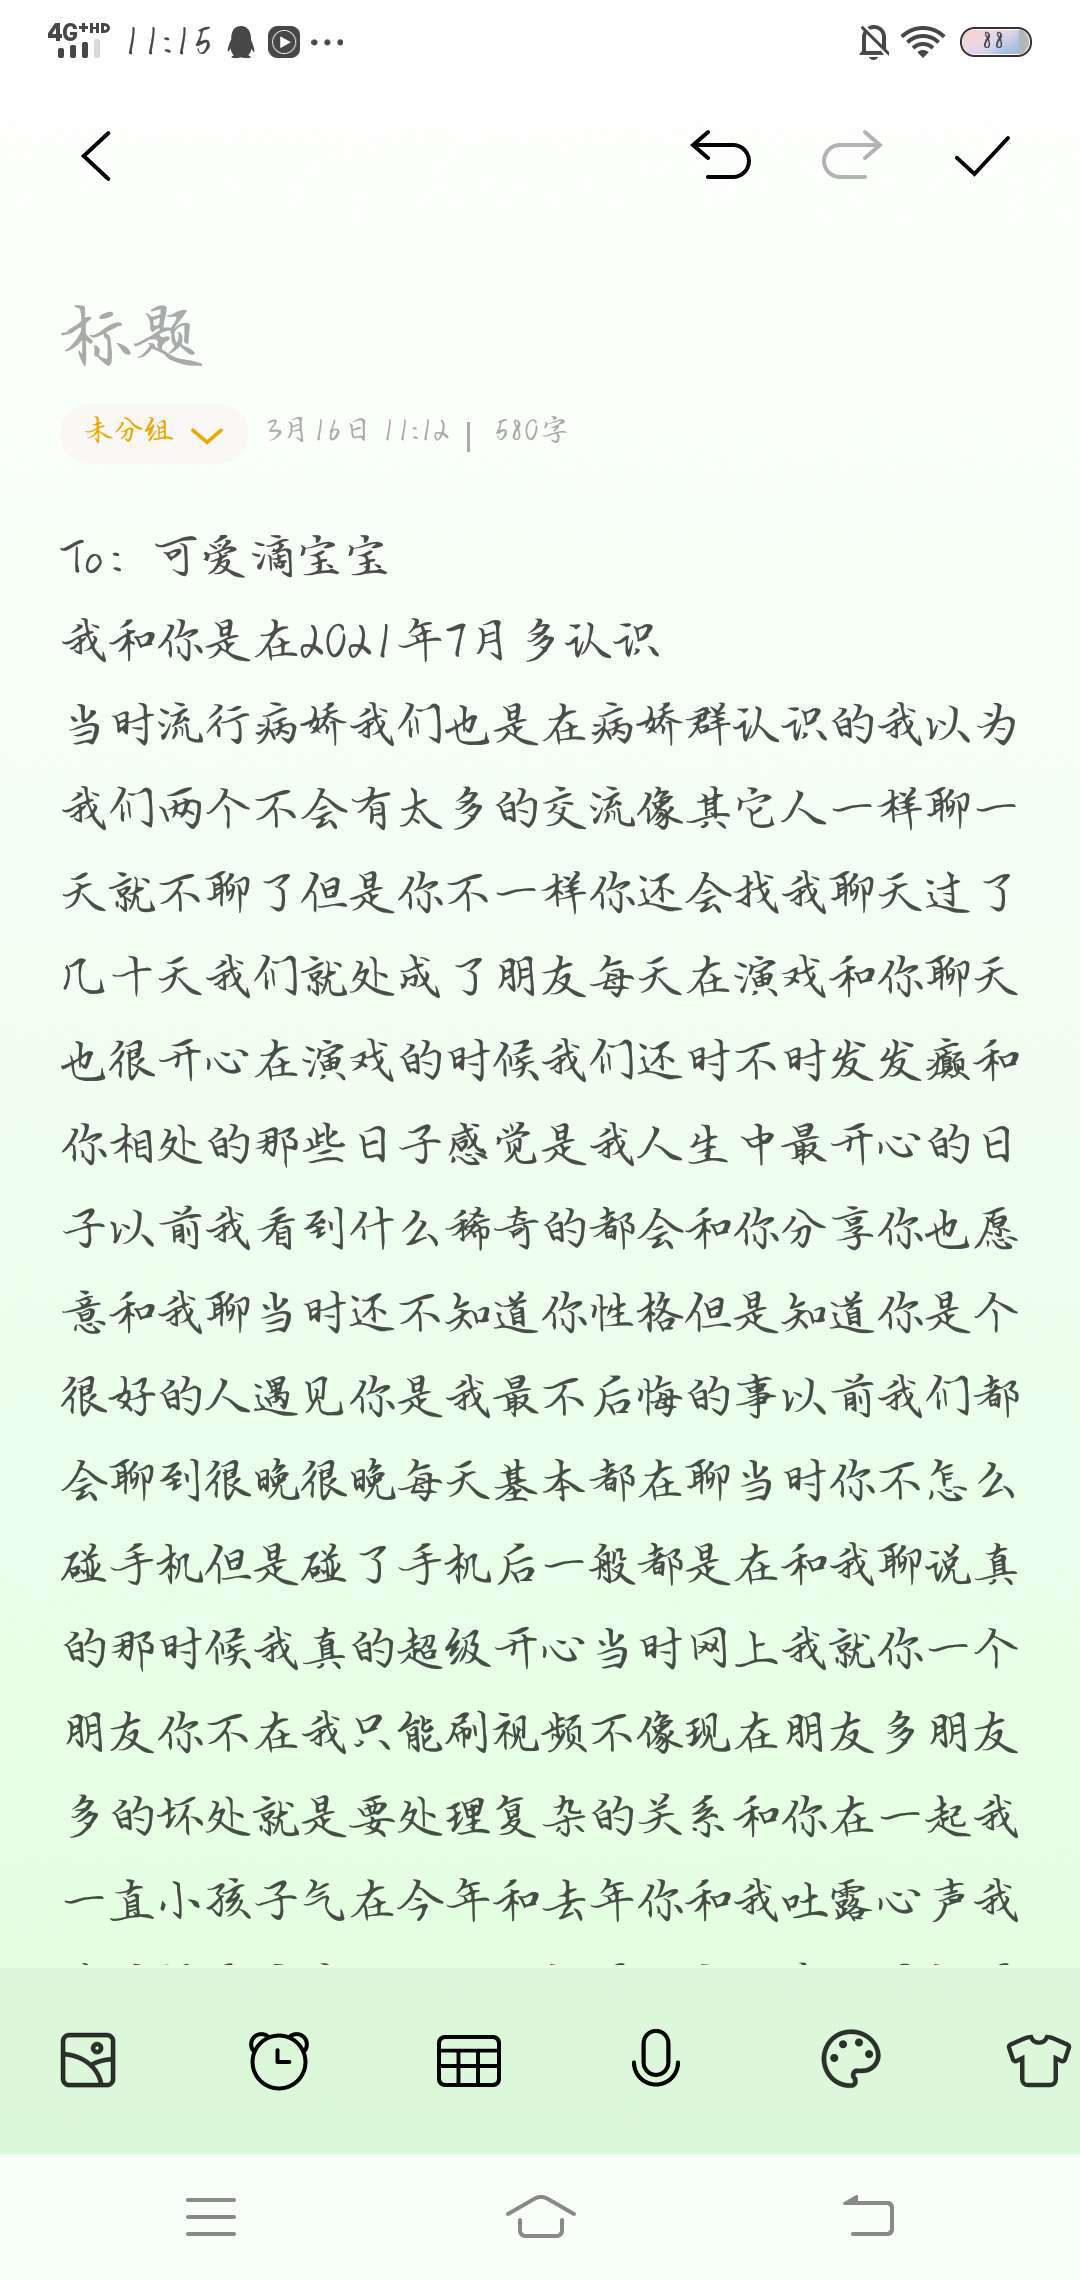 4G+HD 11:15 88
标题
未分组 3月16日 11:12 | 580字
To：可爱滴宝宝
我和你是在2021年7月多认识
当时流行病娇我们也是在病娇群认识的我以为
我们两个不会有太多的交流像其它人一样聊一
天就不聊了但是你不一样你还会找我聊天过了
几十天我们就处成了朋友每天在演戏和你聊天
也很开心在演戏的时候我们还时不时发发癫和
你相处的那些日子感觉是我人生中最开心的日
子以前我看到什么稀奇的都会和你分享你也愿
意和我聊当时还不知道你性格但是知道你是个
很好的人遇见你是我最不后悔的事以前我们都
会聊到很晚很晚每天基本都在聊当时你不怎么
碰手机但是碰了手机后一般都是在和我聊说真
的那时候我真的超级开心当时网上我就你一个
朋友你不在我只能刷视频不像现在朋友多朋友
多的坏处就是要处理复杂的关系和你在一起我
一直小孩子气在今年和去年你和我吐露心声我